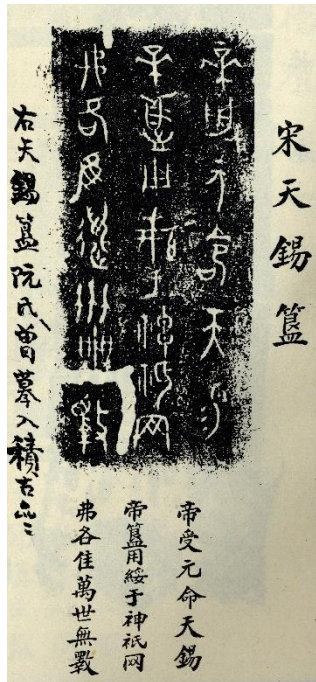 宋天錫簠
帝受元命天錫
帝簠用綏于神祇网
弗各隹萬世無斁
右天錫簠阮氏曾摹入積古